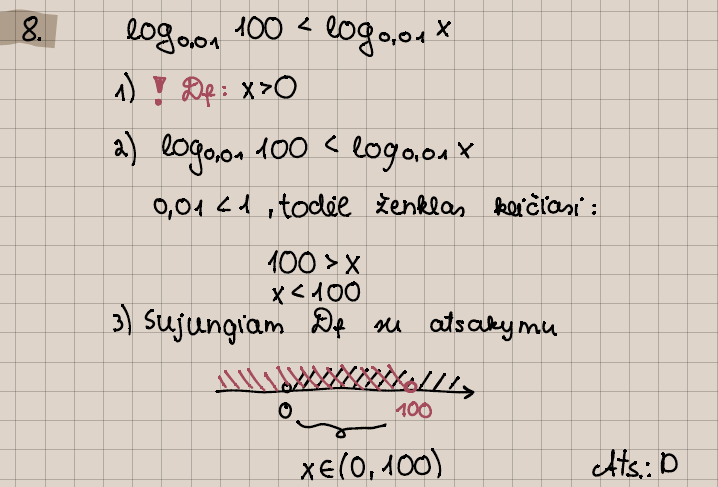 8. log₀,₀₁ 100 < log₀,₀₁ x
1) ! Df: x>0
2) log₀,₀₁ 100 < log₀,₀₁ x
0,01 < 1, todėl ženklas keičiasi:
100 > x
x < 100
3) Sujungiam Df su atsakymu
0 100
x∈(0, 100) Ats.: D